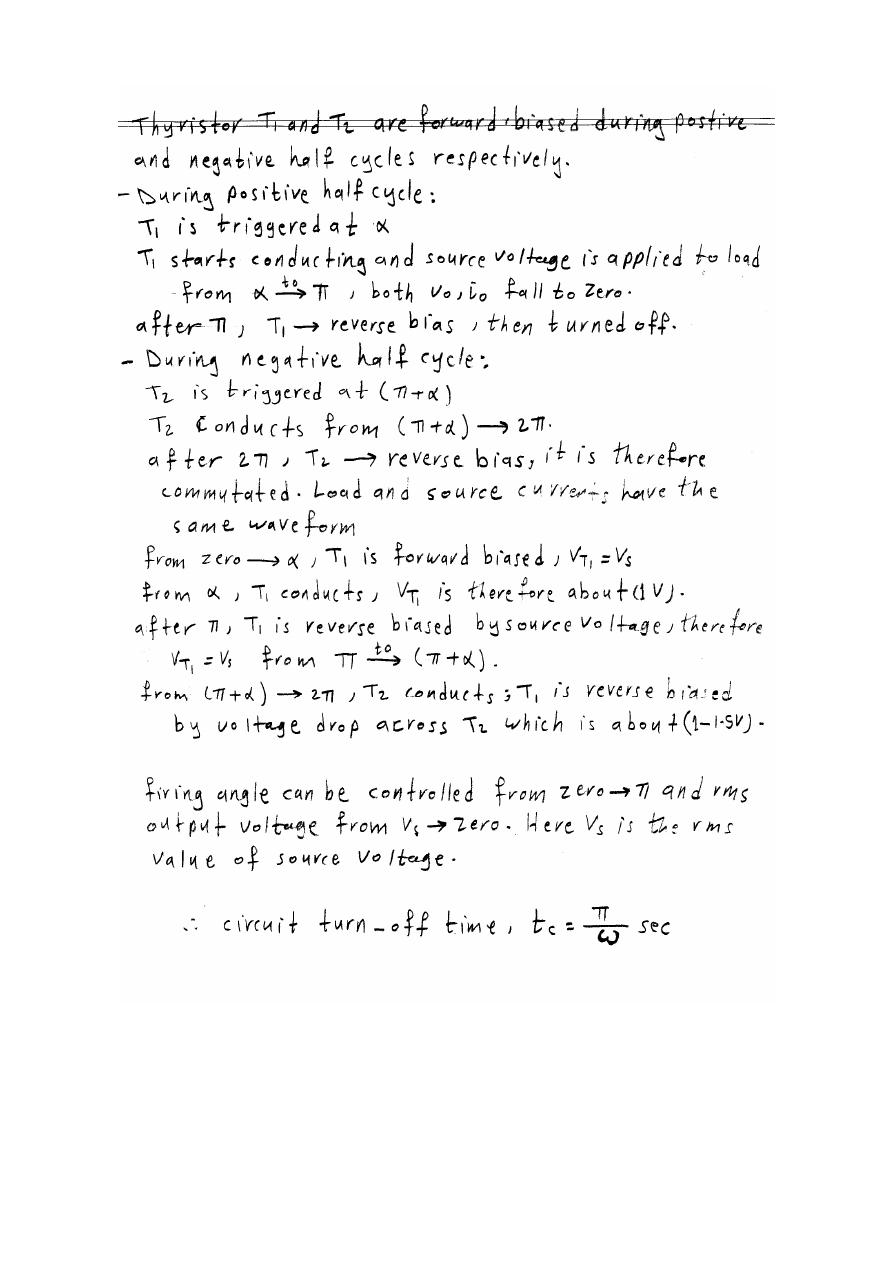 Thyristor T1 and T2 are forward biased during postive
and negative half cycles respectively.
- During positive half cycle:
T1 is triggered at α
T1 starts conducting and source voltage is applied to load
from α →to π , both vo, io fall to zero.
after π, T1 → reverse bias , then turned off.
- During negative half cycle:
T2 is triggered at (π+α)
T2 Conducts from (π+α) → 2π.
after 2π , T2 → reverse bias, it is therefore
commutated. Load and source currents have the
same waveform
from zero → α , T1 is forward biased , VT1 = Vs
from α , T1 conducts, VT1 is therefore about (1V).
after π, T1 is reverse biased by source voltage, therefore
VT1 = Vs from π →to (π+α).
from (π+α) → 2π , T2 conducts ; T1 is reverse biased
by voltage drop across T2 which is about (1-1.5V).
firing angle can be controlled from zero → π and rms
output voltage from Vs → zero. Here Vs is the rms
value of source voltage.
∴ circuit turn-off time, tc = π/ω sec